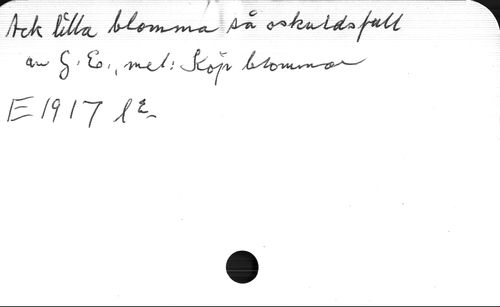 Ack lilla blomma så oskuldsfull
av G. E., mel: Köp blommor
E 1917 l 2